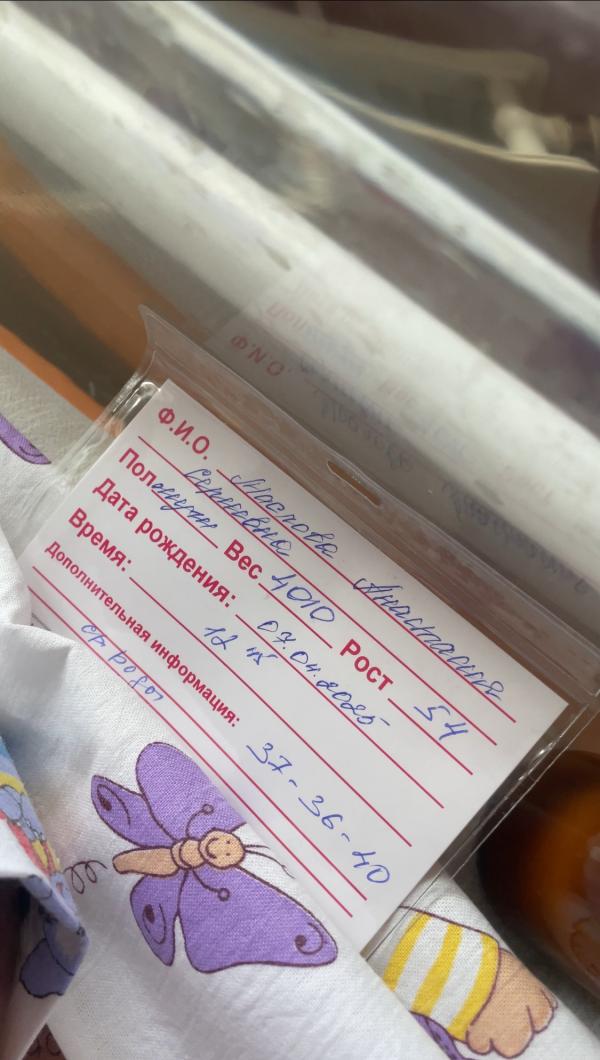 Ф.И.О. Маслова Анастасия
Сергеевна
Пол муж Вес 4010 Рост 54
Дата рождения: 07.04.2025
Время: 12 15
Дополнительная информация: 37-36-40
роды
Ф.И.О.